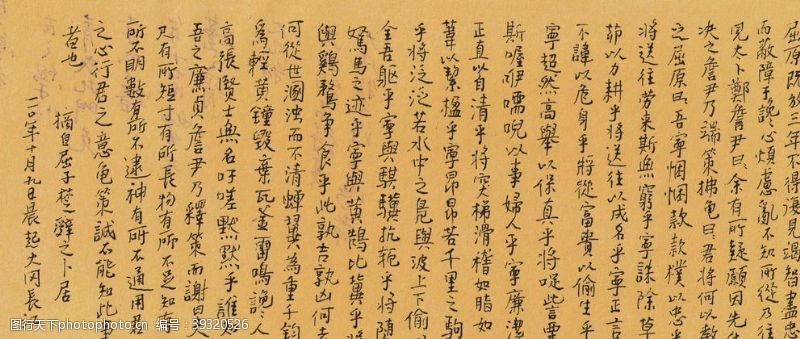 屈原既放三年不得復見竭智盡忠
而蔽障于讒心煩慮亂不知所從乃往
見太卜鄭詹尹曰余有所疑願因先生
決之詹尹乃端策拂龜曰君將何以教
之屈原曰吾寧悃悃款款樸以忠乎
將送往勞來斯無窮乎寧誅除草
茆以力耕乎將送往以成名乎寧正言
不諱以危身乎將從富貴以偷生乎
寧超然高舉以保真乎將哫訾栗
斯喔咿嚅唲以事婦人乎寧廉潔
正直以自清乎將突梯滑稽如脂如
葦以絜楹乎寧昂昂若千里之駒
乎將泛泛若水中之鳧與波上下偷以
全吾軀乎寧與騏驥抗軛乎將隨
駑馬之迹乎寧與黃鵠比翼乎將
與鷄鶩爭食乎此孰吉孰凶何去
何從世溷濁而不清蟬翼為重千鈞
為輕黃鐘毀棄瓦釜雷鳴讒人
高張賢士無名吁嗟默默乎誰知
吾之廉貞詹尹乃釋策而謝曰夫
尺有所短寸有所長物有所不足知有
所不明數有所不逮神有所不通用君
之心行君之意龜策誠不能知此事
也
摘自屈子楚辭之卜居
年十月九日晨起大岡長
图行天下 photophoto.cn 编号:39320526